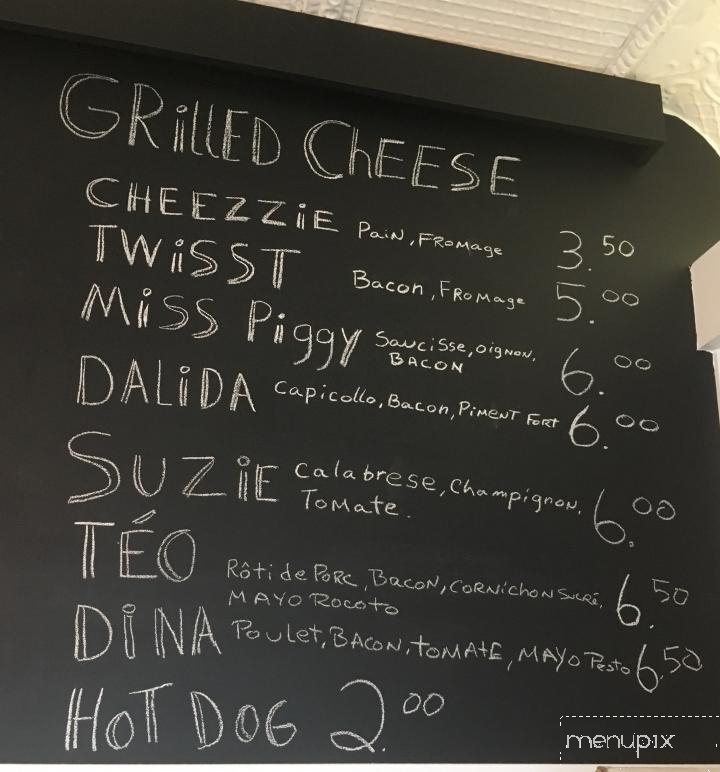 GRiLLED ChEESE
CHEEZZiE Pain, Fromage 3.50
TWiSST Bacon, Fromage 5.00
MiSS Piggy Saucisse, oignon, 6.00
BACON
DALiDA Capicollo, Bacon, Piment Fort 6.00
SUZiE Calabrese, Champignon, 6.00
Tomate.
TÉO Rôti de Porc, Bacon, Cornichon Sucré, 6.50
MAYO Rocoto
DiNA Poulet, BACON, tomate, MAYO Pesto 6.50
HOT DOG 2.00
menupix